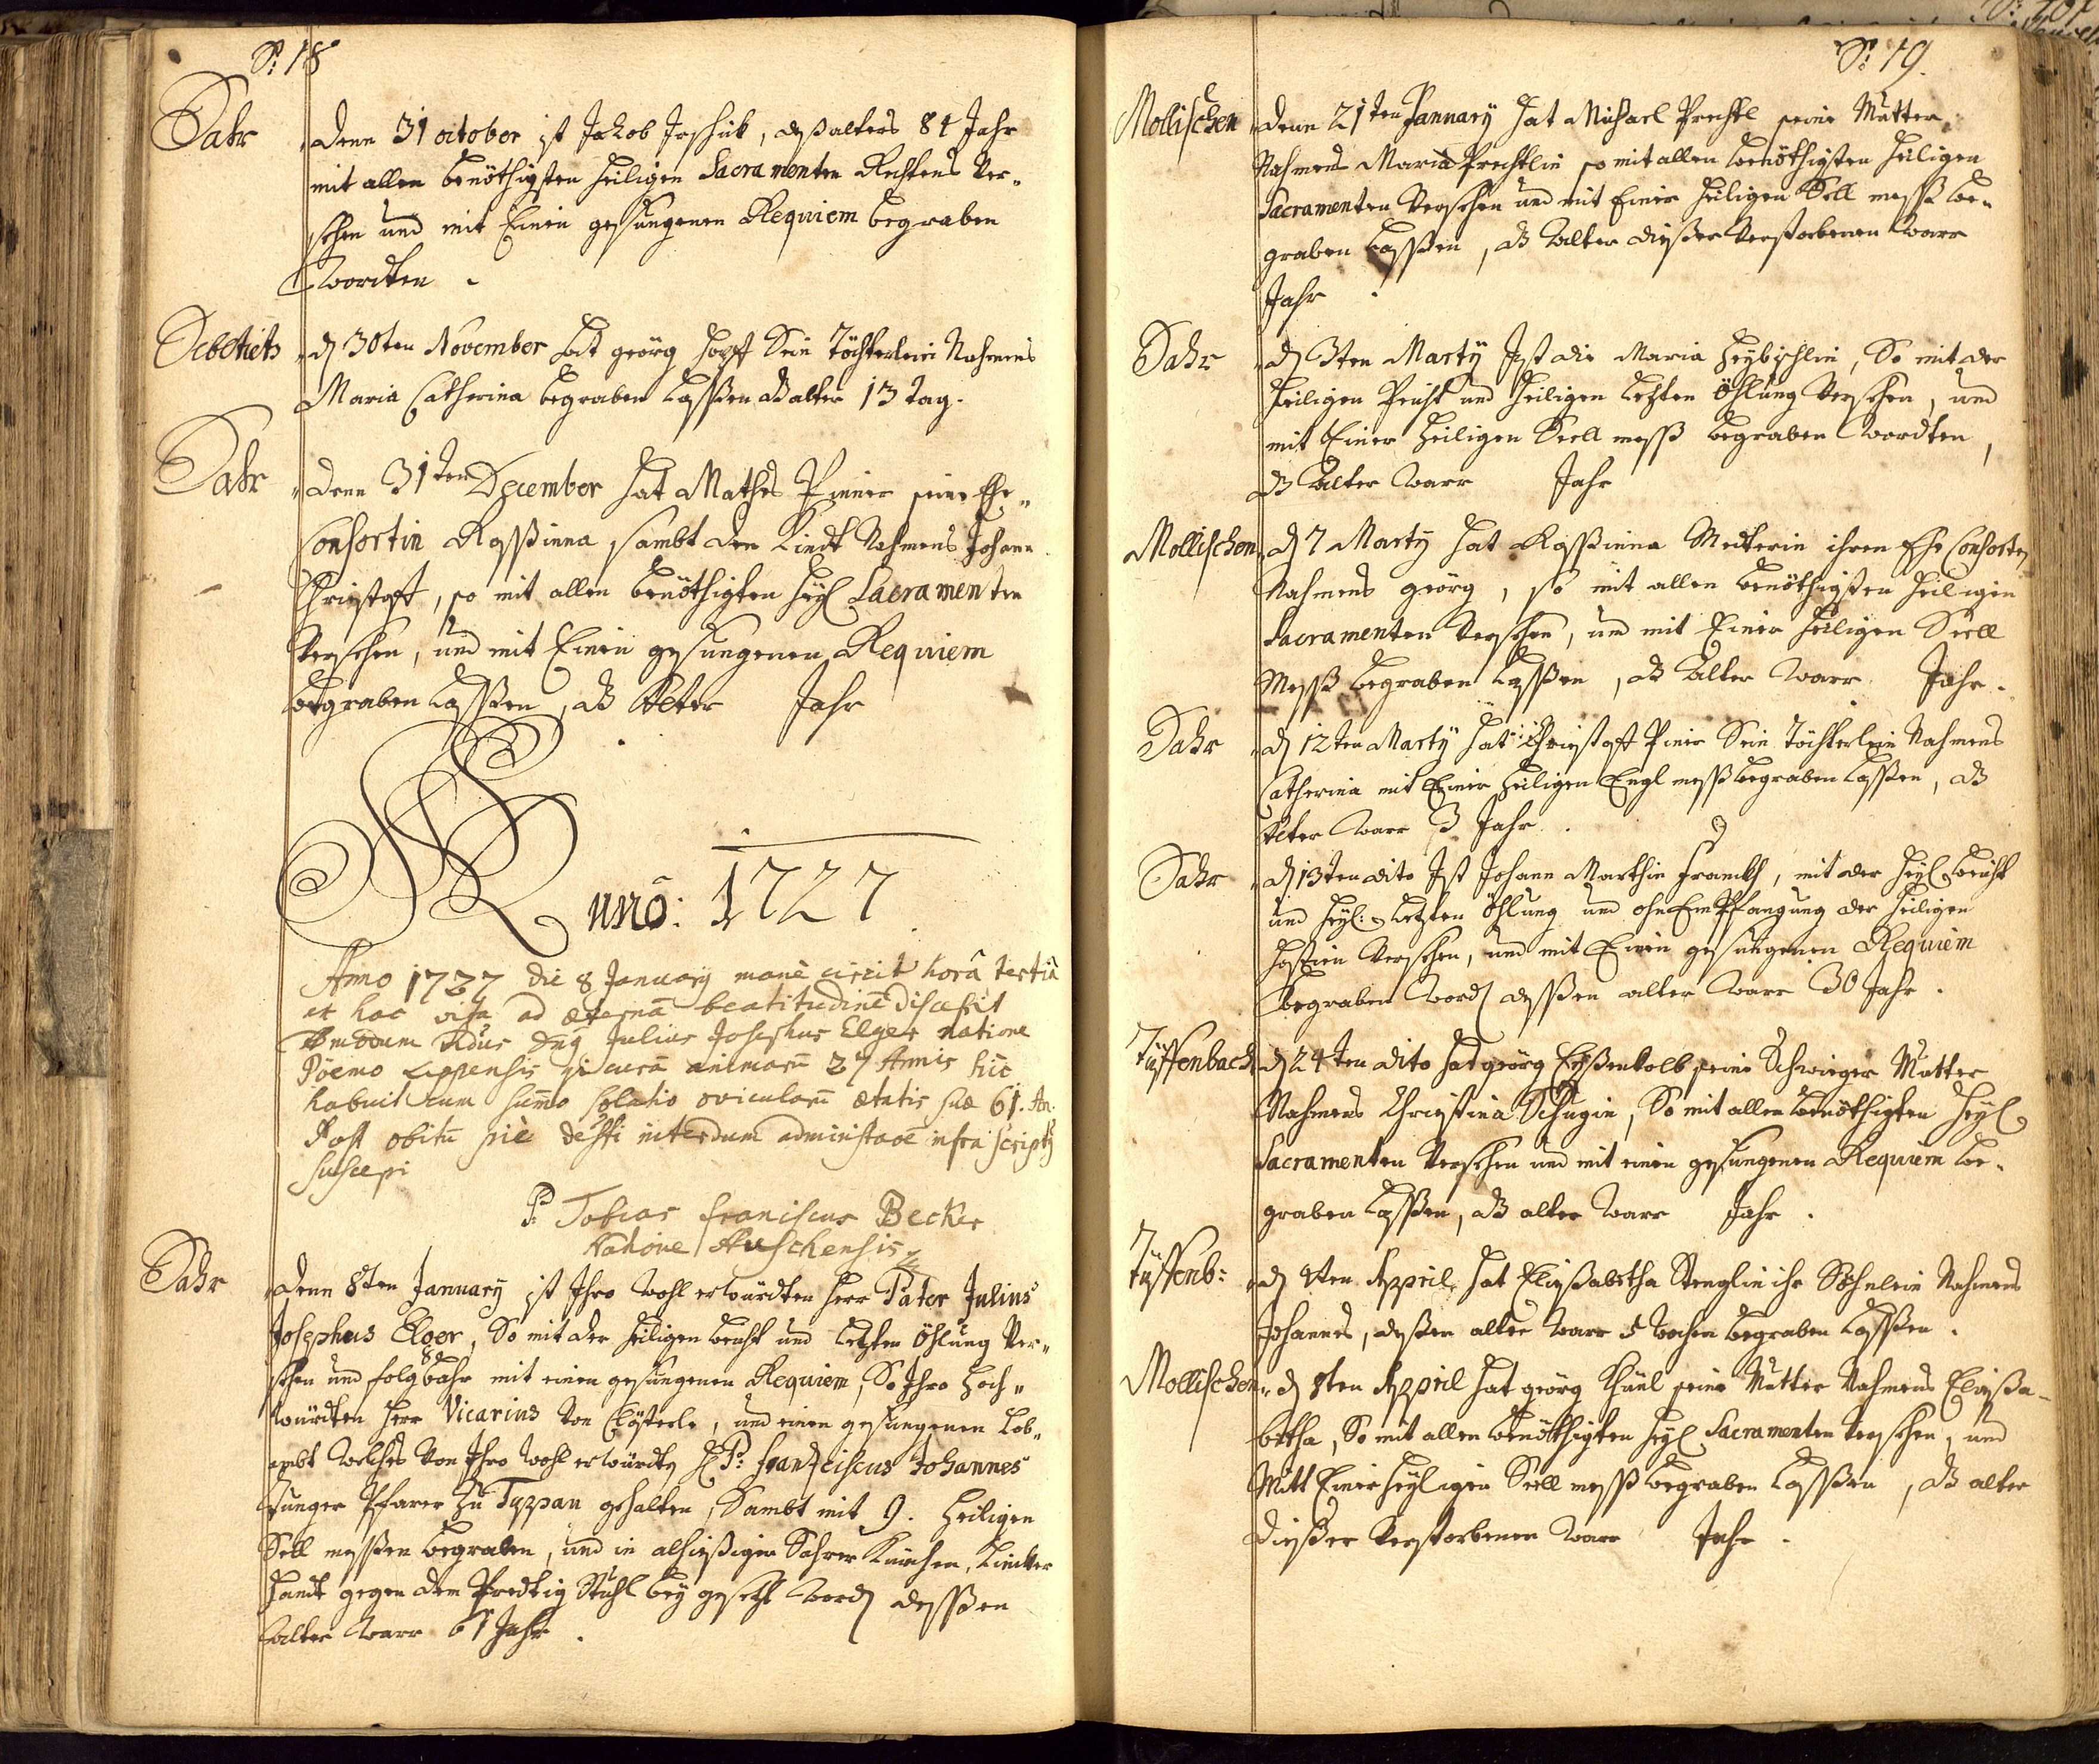 S: 18
Sahr
Denn 31 october ist Jakob Joschik, deß alters 84 Jahr
mit allen benöthigsten heiligen Sacramenten Rechtens Ver-
sehen und mit Einen gesungenen Requiem begraben
Wordten .
d 30ten November hat georg Sein Töchterlein Nahmens
Maria Catherina begraben Lassßen dß alter 13 tag.
Sahr
Denn 31ten December hat Mathes seine Ehe-
Consortin Rossinna sambt den Kindt Nahmens Johann
Christoff, so mit allen benöthigten heyl Sacramenten
Versehen, und mit Einen gesungenen Requiem
begraben Lassßen, dß Alter Jahr
Anno: 1727
Anno 1727 die 8 January mane circit horâ tertiâ
ex hac vita ad æternã beatitudinẽ discesit
Admodum Rdus Dnũ Julius Josephus Elger natione
Böemo curã animarũ 27 Annis hic
habuit cum sum̃o solatio ovicularũ ætatis suæ 61. An.
Post obitũ piè defti interdum administraõẽ infra scriptũ
suscepi
P: Tobias franciscus Becker
Natione
Sahr
Denn 8ten January ist Ihro Wohl erwürdten Herr Pater Julius
Josephus Elger, So mit der heiligen beicht und Letzten öhlung Ver-
sehen und mit einen gesungenen Requiem, So Ihro Hoch-
würdten Herr Vicarius Von Clösterle, und einen gesungenen Lob-
ambt welches Von Ihro Wohl erwürdten H P: Frantziscus Johannes
Junger Pfarer Zu gehalten, Sambt mit 9. heiligen
Sell messßen begraben, und in alhießigen Sahrer Kirchen, Lincker
handt gegen dem Predtig Stuhl bey gesetzt Wordn dessßen
alter Warr 61 Jahr .
S: 19.
Mollischen
Denn 21ten January hat Michael Prechtl seine Mutter
Nahmens Maria Prechtlin so mit allen benöthigsten heiligen
Sacramenten Versehen und mit Einer heiligen Sell messß be-
graben Lassßen, dß alter dießer Verstorbenen Warr
Jahr .
Sahr
d 3ten Marty Ist die Maria, So mit der
heiligen Peicht und heiligen Letzten öhlung Versehen, und
mit Einer heiligen Seell messß begraben Wordten,
dß Alter Warr Jahr
Mollischen
d 7 Marty hat Rossinna ihren Ehe Consorten
Nahmens georg, so mit allen benöthigsten heiligen
Sacramenten Versehen, und mit Einer heiligen Seell
Messß begraben Lassßen, dß alter Warr Jahr.
Sahr
d 12ten Marty hat Christoff Sein Töchterlein Nahmens
Catherina mit Einer heiligen Engl messß begraben Lassßen, dß
Alter Warr 3 Jahr .
Sahr
d 13ten dito Ist Johann Marthin Franckh, mit der heyl beicht
und heyl: Letzten öhlung und ohn Empfangung der heiligen
Hostien Versehen, und mit Einen gesungenen Requiem
begraben Wordn dessßen alter Warr 30 Jahr .
Tüffenbach
d 24ten dito hat georg Eyßenkolb seine Schwieger Mutter
Nahmens Christina, So mit allen benöthigten heyl
Sacramenten Versehen und mit einen gesungenen Requiem be-
graben Lassßen, dß alter Warr Jahr .
Tüffenb:
April hat Elißabetha Stenglin ihr Söhnlein Nahmens
Johannes, dessßen alter Warr 5 Wochen begraben Lassßen .
Mollischen
d 8ten April hat georg seine Mutter Nahmens Elißa-
betha, So mit allen benöthigten heyl Sacramenten Versehen, und
Mitt Einer heyligen Seell messß begraben Lassßen, dß alter
Dießer Verstorbenen Warr Jahr .